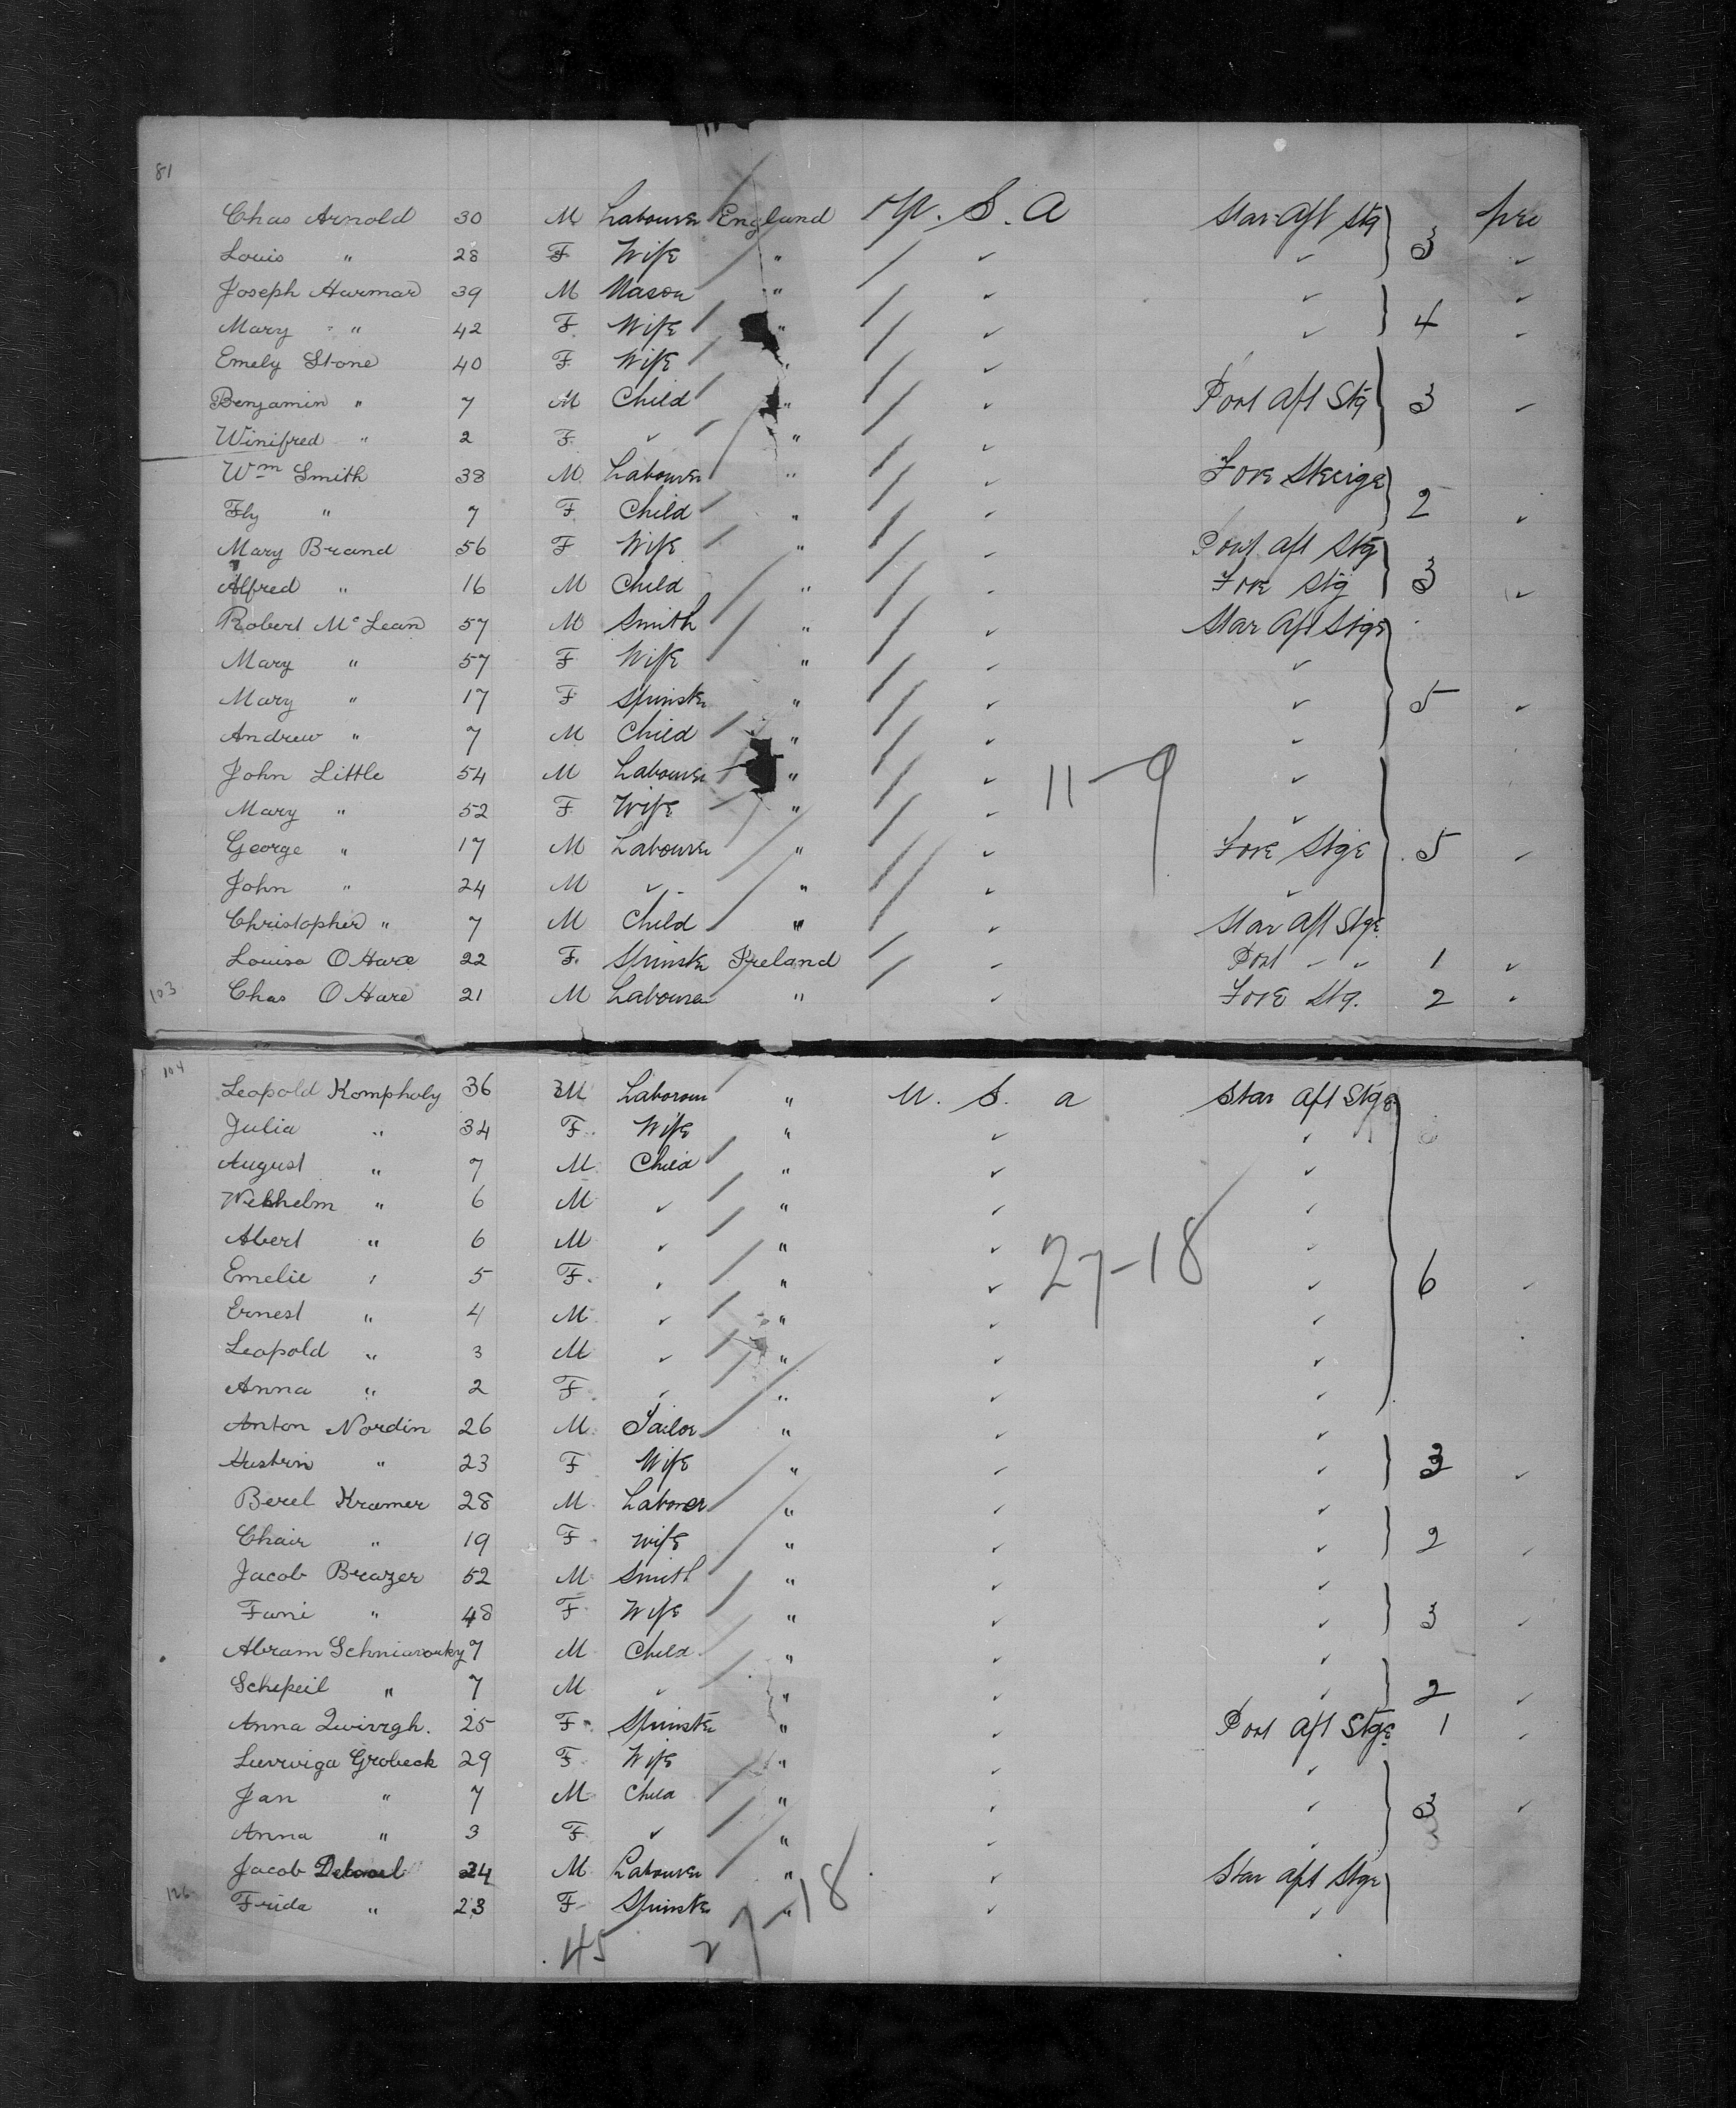 81
Chas Arnold 30 M Labourer England U. S. A Star Aft Stg 3 pre
Louis " 28 F Wife " ✓ ✓ ✓
Joseph Harmar 39 M Mason " ✓ ✓ ✓
Mary " 42 F Wife " ✓ ✓ 4 ✓
Emely Stone 40 F Wife " ✓
Benjamin " 7 M Child " ✓ Port Aft Stg 3 ✓
Winifred " 2 F ✓ " ✓
Wm Smith 38 M Labourer " ✓ Fore Steerige
Fly " 7 F Child " ✓ 2 ✓
Mary Brand 56 F Wife " ✓ Port Aft Stg
Alfred " 16 M Child " ✓ Fore Stg 3 ✓
Robert McLean 57 M Smith " ✓ Star Aft Stge
Mary " 57 F Wife " ✓ ✓
Mary " 17 F Spinster " ✓ ✓ 5 ✓
Andrew " 7 M Child " ✓ ✓
John Little 54 M Labourer " ✓ 11-9 ✓
Mary " 52 F Wife " ✓ ✓
George " 17 M Labourer " ✓ Fore Stge 5 ✓
John " 24 M ✓ " ✓ ✓
Christopher " 7 M Child " ✓ Star Aft Stge
Louisa O Hare 22 F. Spinster Ireland ✓ Port " ✓ 1 ✓
103 Chas O Hare 21 M Labourer " ✓ Fore Stg. 2 ✓
104
Leopold Kompholy 36 M Laborour " U. S. a Star Aft Stge
Julia " 34 F Wife " ✓ ✓
August " 7 M Child " ✓ ✓
6 M ✓ " ✓ ✓
Abert " 6 M ✓ " ✓ 27-18 ✓
Emelie " 5 F ✓ " ✓ ✓ 6 ✓
Ernest " 4 M ✓ " ✓ ✓
Leopold " 3 M ✓ " ✓ ✓
Anna " 2 F ✓ " ✓ ✓
Anton Nordin 26 M Tailor " ✓ ✓
Hustrin " 23 F Wife " ✓ ✓ 3 ✓
Berel Kramer 28 M Laborer " ✓ ✓
Chair " 19 F wife " ✓ ✓ 2 ✓
Jacob Brazer 52 M Smith " ✓ ✓
Fani " 48 F Wife " ✓ ✓ 3 ✓
Abram 7 M Child " ✓ ✓
Schepeil " 7 M ✓ " ✓ ✓ 2 ✓
Anna 25 F Spinster " ✓ Port Aft Stge 1 ✓
Grobeck 29 F Wife " ✓ ✓
Jan " 7 M Child " ✓ ✓ 3 ✓
Anna " 3 F ✓ " ✓ ✓
Jacob 24 M Labourer " ✓ Star Aft Stge
126 Frida " 23 F Spinster " ✓ ✓
45 27-18